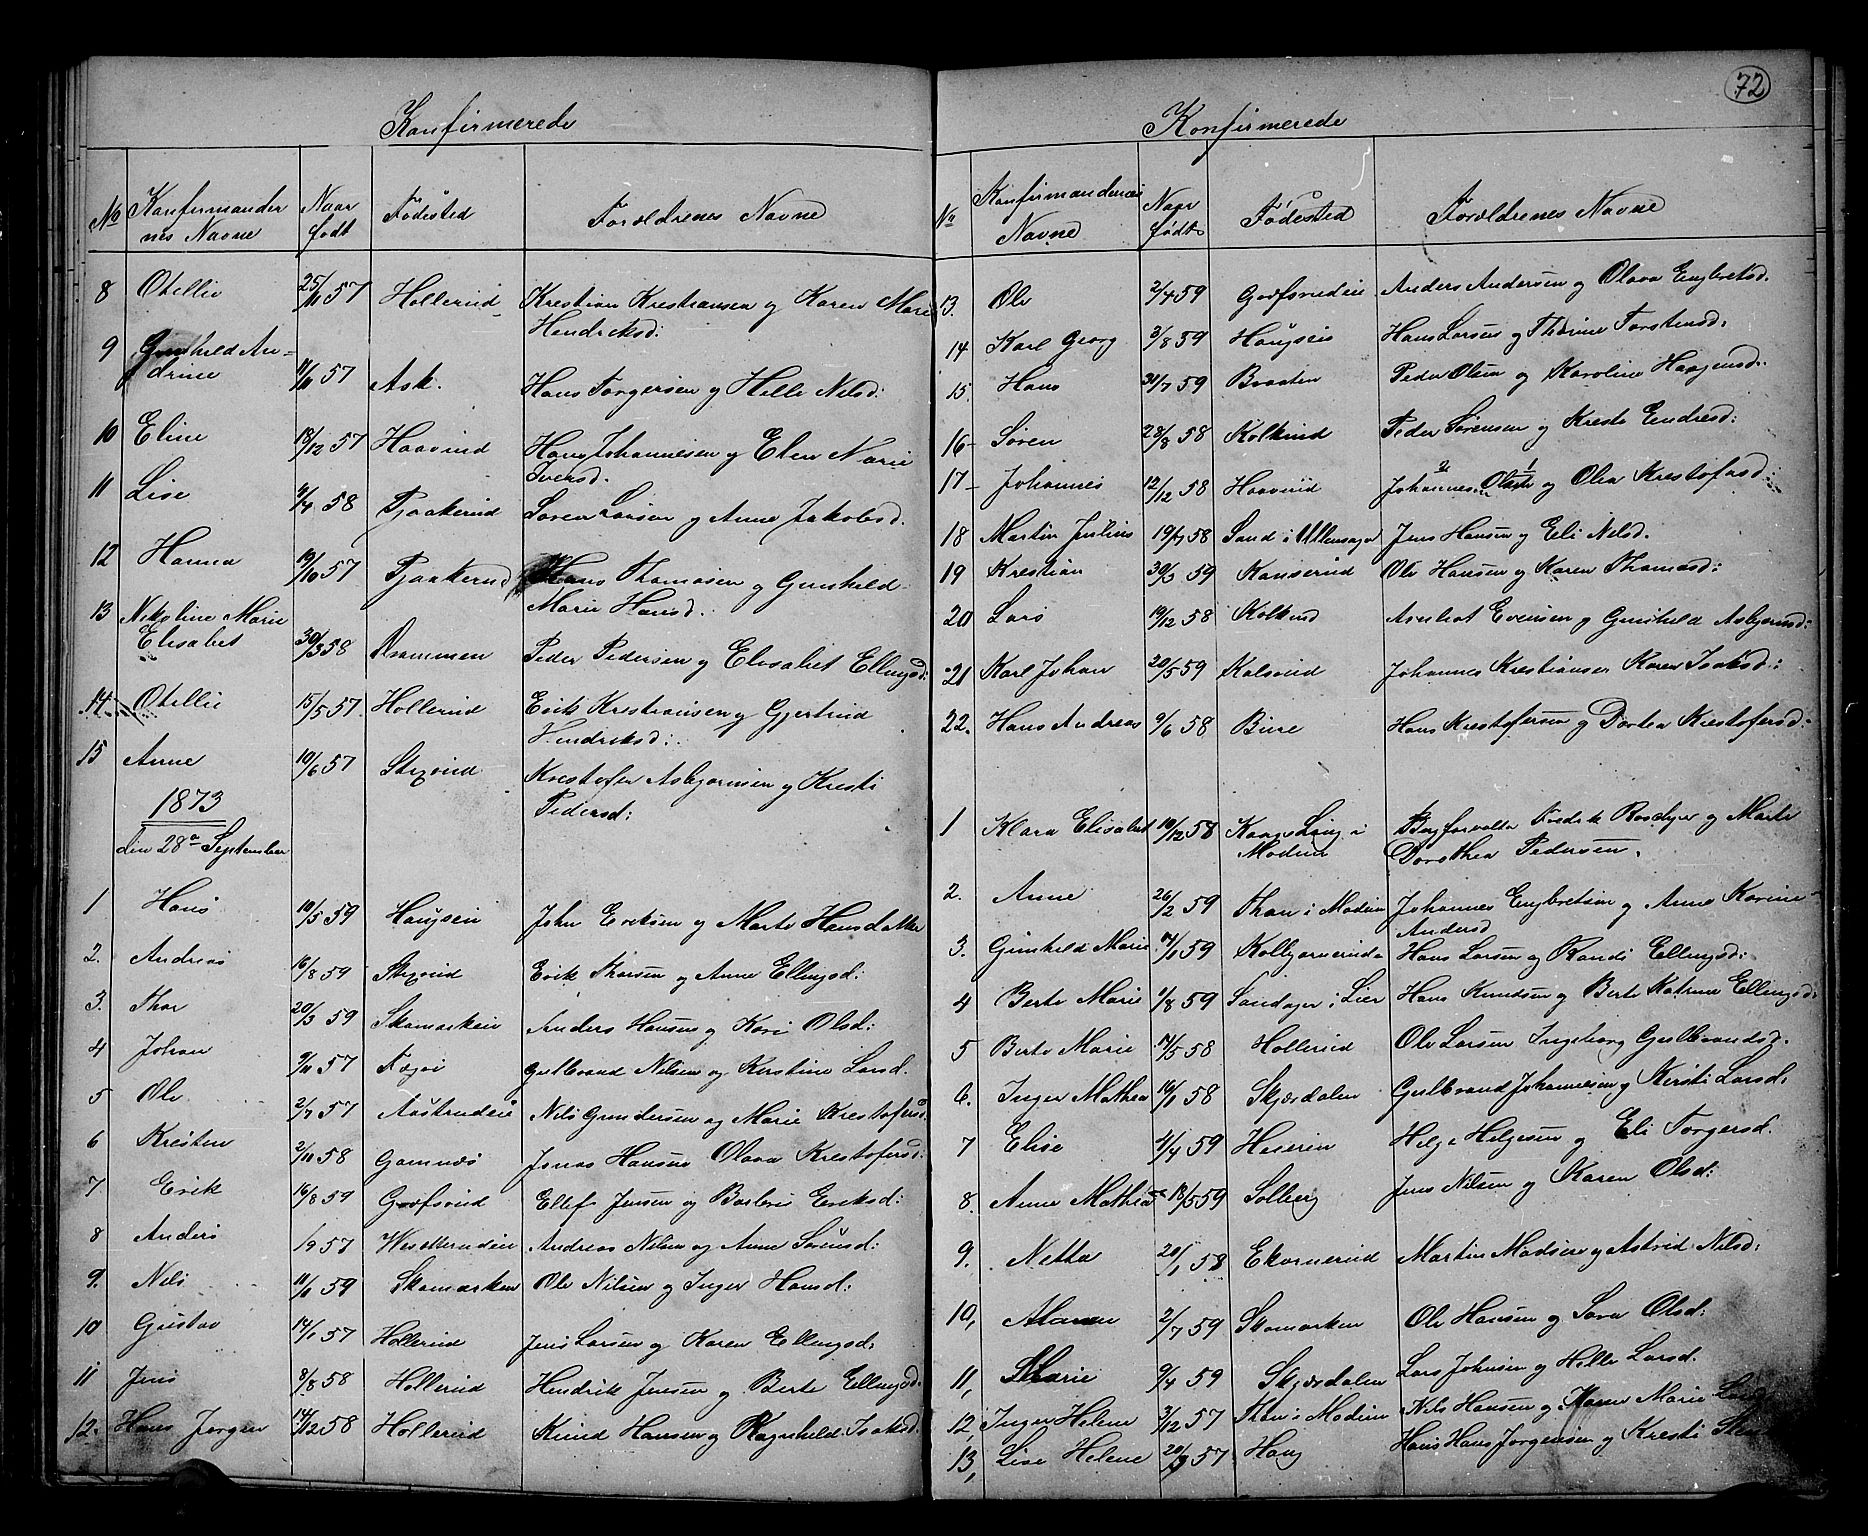 Konfirmerede
No Konfirmander
nes Navne
Naar
født
Fødested
Forældrenes Navne
8 Otellie 25/11 57 Hollerud Kristian Kristiansen og Karen Marie
Hendriksd:
9 Gunhild An-
drine 11/11 57 Ask. Hans Torgersen og Helle Nilsd:
10 Eline 18/12 57 Haavind Hans Johannesen og Elen Marie
Iversd.
11 Lise 9/4 58 Tjaakerud Søren Larsen og Anne Jakobsd.
12 Hanna 19/10 57 Tjaakerud Hans Thomasen og Gunhild
Marie Hansd.
13 Nikoline Marie
Elisabet 30/3 58 Drammen Peder Pedersen og Elisabet Ellingsd:
14 Otellie 15/5 57 Hollerud Erik Kristiansen og Gjertrud
Hendriksd:
15 Anne 10/6 57 Stixrud Kristofer Asbjørnsen og Kristi
Pedersd:
1873
den 28de September
1 Hans 10/5 59 Haugsen John Eriksen og Marte Hansdatter
2. Andreas 16/8 59 Stixrud Erik Thorsen og Anne Ellingsd:
3. Thor 20/3 59 Skamarken Anders Hansen og Kari Olsd:
4 Johan 9/11 57 Fægri Gulbrand Nilsen og Kirstine Larsd.
5 Ole 2/7 57 Aastrudeie Nils Gundersen og Marie Kristofersd
6 Kristen 2/11 58 Gomnæs Jonas Hansen Olava Kristofersd:
7 Erik 16/8 59 Godfsrud Ellef Jensen og Barbro Eriksd:
8 Anders 19 57 Wesetterudeie Andreas Nilsen og Anne Sørensd:
9. Nils 11/1 59 Skamarken Ole Nilsen og Inger Hansd:
10 Gustav 14/1 57 Hollerud Jens Larsen og Karen Ellingsd:
11 Jens 8/8 58 Hollerud Hendrik Jensen og Berte Ellingsd.
12. Hans Jørgen 14/12 58 Hollerud Knud Hansen og Ragnhild Isaksd.
72
Konfirmerede
No Konfirmandernes
Navne
Naar
født
Fødested
Forældrenes Navne
13. Ole 2/4 59 Godfsrudeie Anders Andersen og Olava Engbretsd.
14 Karl Georg 3/8 59 Haugseie Hans Larsen og Thorine Torstensd:
15. Hans 31/7 59 Braaten Peder Olsen og Karoline Haagensd.
16 Søren 28/8 58 Kolkind Peder Sørensen og Kristi Endresd:
17 Johannes 12/12 58 Haavind Johannes Olsen og Olea Kristofersd:
18 Martin Julius 19/7 58 Sand i Ullensager Jens Hansen og Eli Nilsd.
19 Kristian 30/3 59 Kanserud Ole Hansen og Karen Thomasd:
20 Lars 19/12 58 Kolkind Ambrot Evensen og Gunhild Asbjørnsd:
21 Karl Johan 20/5 59 Kalsrud Johannes Kristiansen Karen Isaksd:
22. Hans Andreas 9/6 58 Bure Hans Kristofersen og Dortea Kristofersd.
1 Klara Elisabet 10/12 58 Kaggs i
Modum Bergforvalter Fredrik og Marte
Dorothea Pedersen.
2. Anne 26/2 59 Thon i Modum Johannes Engbretsen og Anne Karine
Andersd
3. Gunhild Marie 7/1 59 Kolbjørnerud Hans Larsen og Randi Ellingsd:
4 Berte Marie 1/8 59 Sandager i Lier Hans Knudsen og Berte Katrine Ellingsd:
5 Berte Marie 17/5 58 Hollerud Ole Larsen Ingeborg Gulbrandsd.
6. Inger Mathea 16/1 58 Skjærdalen Gulbrand Johannesen og Kirsti Larsd:
7 Elise 4/4 59 Heieren Helge Helgesen og Eli Torgersd.
8. Anne Mathea 18/5 59 Solberg Jens Nilsen og Karen Olsd:
9. Netta 20/1 58 Ekornerud Martin Madsen og Astrid Nilsd:
10, Maren 2/7 59 Skamarken Ole Hansen og Sara Olsd:
11, Marie 9/4 59 Skjærdalen Lars Johnsen og Helle Larsd.
12, Inger Helene 3/12 57 Thon i Modum Nils Hansen og Karen Marie Larsd
13, Lise Helene 20/9 57 Haug Hans Hans Jørgensen og Kristi